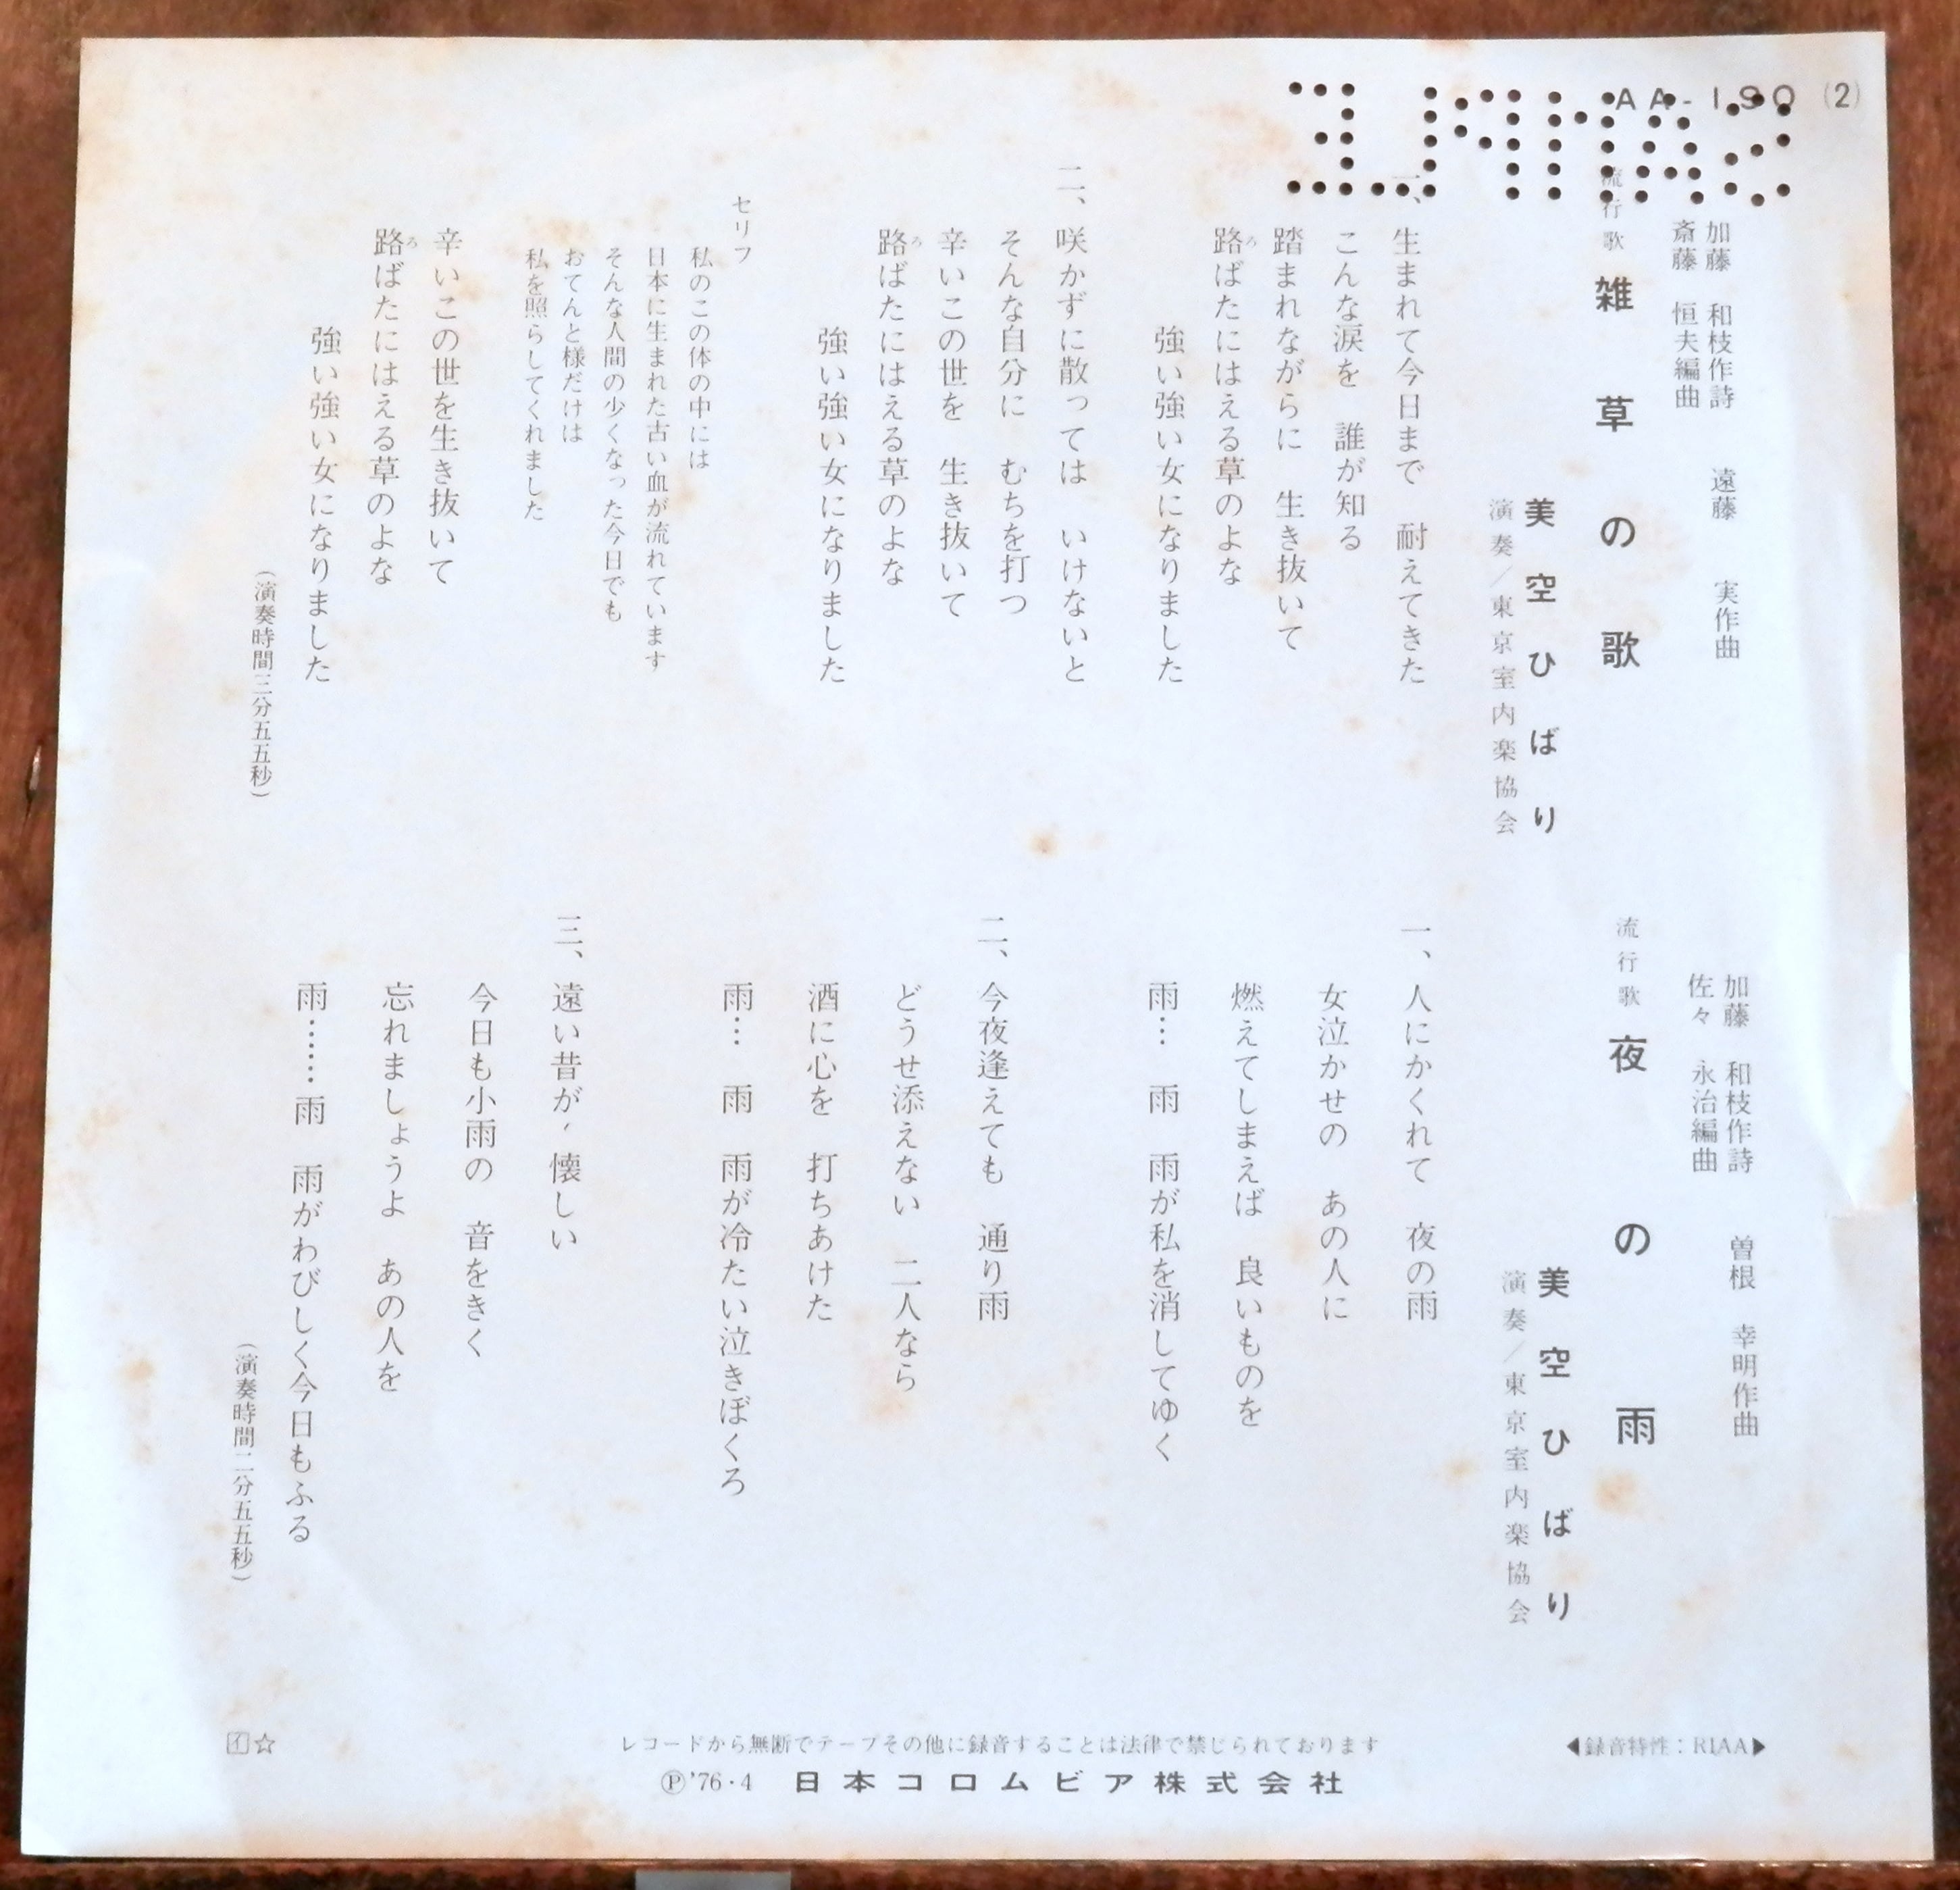 AA-190 (2)
加藤 和枝作詩 遠藤 実作曲
斎藤 恒夫編曲
流行歌 雑草の歌
美空ひばり
演奏/東京室内楽協会
一、生まれて今日まで 耐えてきた
こんな涙を 誰が知る
踏まれながらに 生き抜いて
路ばたにはえる草のよな
強い強い女になりました
二、咲かずに散っては いけないと
そんな自分に むちを打つ
辛いこの世を 生き抜いて
路ばたにはえる草のよな
強い強い女になりました
セリフ
私のこの体の中には
日本に生まれた古い血が流れています
そんな人間の少くなった今日でも
おてんと様だけは
私を照らしてくれました
辛いこの世を生き抜いて
路ばたにはえる草のよな
強い強い女になりました
(演奏時間三分五五秒)
加藤 和枝作詩 曽根 幸明作曲
佐々 永治編曲
流行歌 夜の雨
美空ひばり
演奏/東京室内楽協会
一、人にかくれて 夜の雨
女泣かせの あの人に
燃えてしまえば 良いものを
雨… 雨 雨が私を消してゆく
二、今夜逢えても 通り雨
どうせ添えない 二人なら
酒に心を 打ちあけた
雨… 雨 雨が冷たい泣きぼくろ
三、遠い昔が、懐しい
今日も小雨の 音をきく
忘れましょうよ あの人を
雨……雨 雨がわびしく今日もふる
(演奏時間二分五五秒)
◀録音特性：RIAA▶
レコードから無断でテープその他に録音することは法律で禁じられております
Ⓟ'76・4 日本コロムビア株式会社
イ☆
SAMPLE